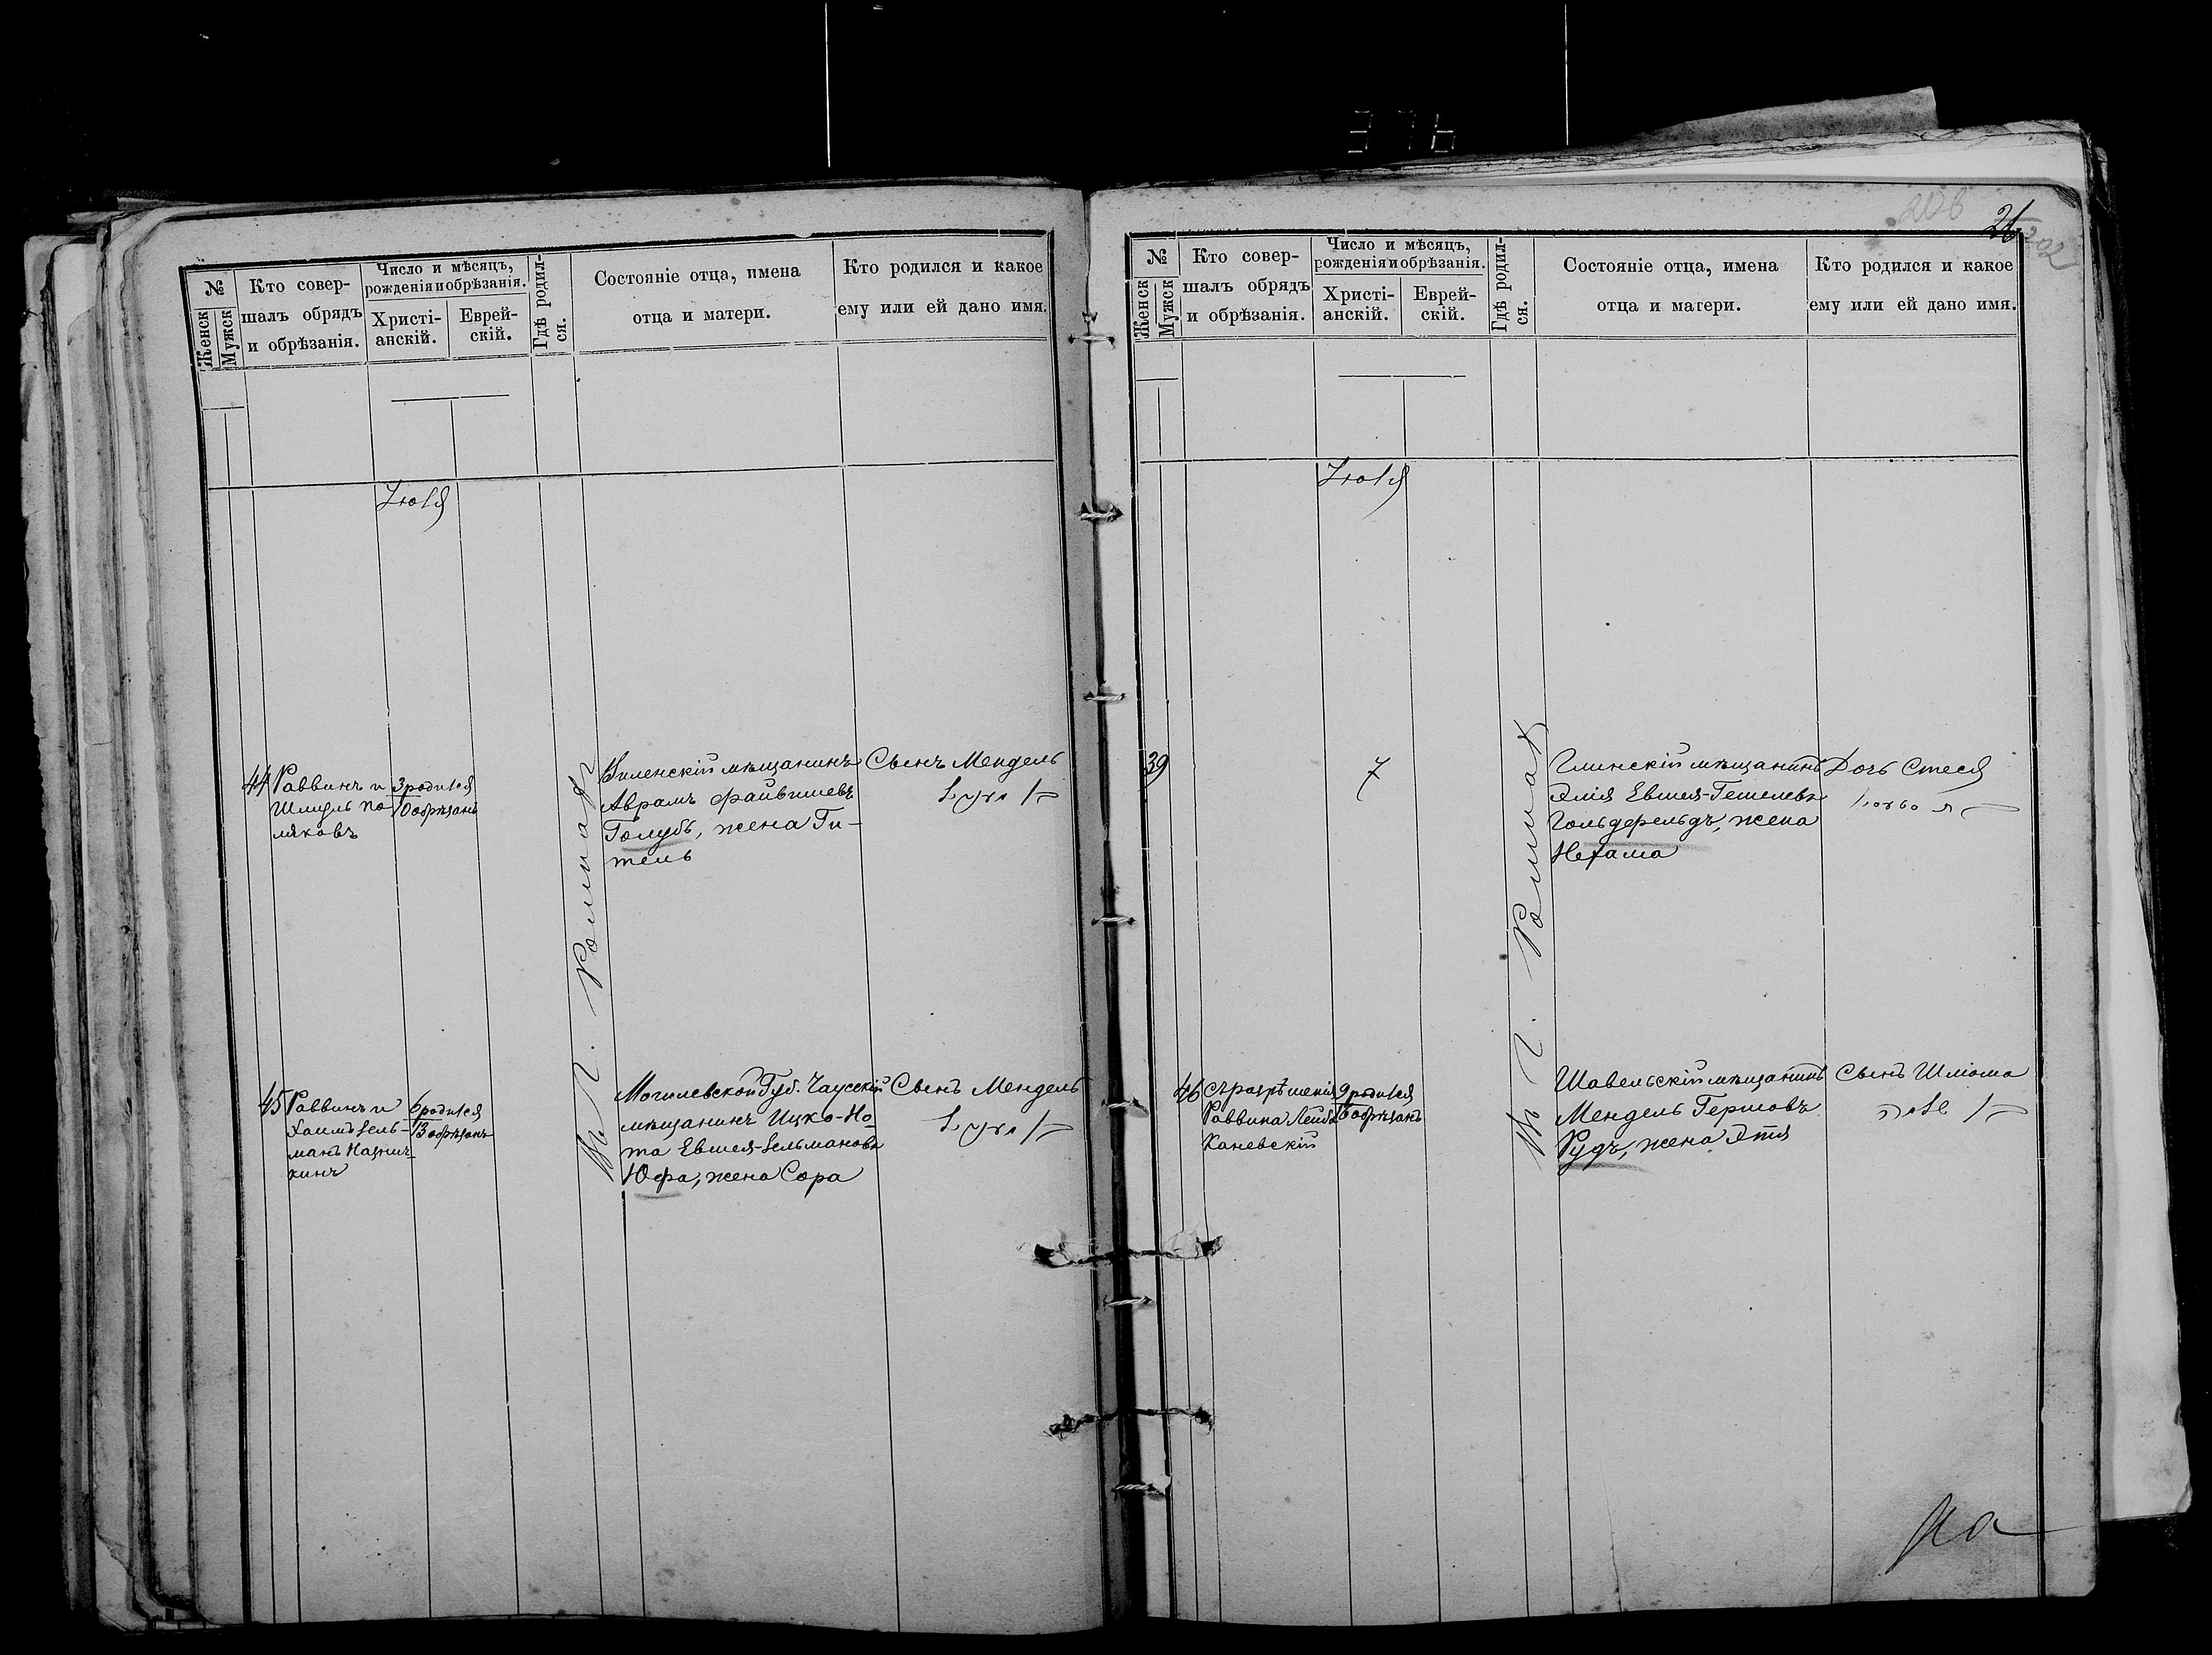 376
№
Женск
Мужск
Кто совер-
шалъ обрядъ
и обрѣзанія.
Число и мѣсяцъ,
рожденія и обрѣзанія.
Христі-
анскій.
Еврей-
скій.
Гдѣ родил-
ся.
Состояніе отца, имена
отца и матери.
Кто родился и какое
ему или ей дано имя.
Іюля
44
Раввинъ и
Шмуль По-
ляковъ
3 родился
10 обрѣзанъ
Въ г. Ромнахъ
Виленскій мѣщанинъ
Абрамъ Файвишевъ
Голубъ, жена Ги-
тель
Сынъ Мендель
בן מענדל
45
Раввинъ и
Хаимъ Зель-
манъ
6 родился
13 обрѣзанъ
Могилевской Губ. Чаусскій
мѣщанинъ Ицко-Но-
та Евшея-Зельмановъ
Юфа, жена Сора
Сынъ Мендель
בן מענדל
206
26
202
№
Женск
Мужск
Кто совер-
шалъ обрядъ
и обрѣзанія.
Число и мѣсяцъ,
рожденія и обрѣзанія.
Христі-
анскій.
Еврей-
скій.
Гдѣ родил-
ся.
Состояніе отца, имена
отца и матери.
Кто родился и какое
ему или ей дано имя.
Іюля
39
7
Въ г. Ромнахъ
Глинскій мѣщанинъ
Элія Евшея-Гешелевъ
Гольдфельдъ, жена
Нехама
Дочь Стеся
בת סטיסיא
46
Съ разрѣшенія
Раввина Лейба
Каневскій
9 родился
16 обрѣзанъ
Шавельскій мѣщанинъ
Мендель Гершовъ
Рудъ, жена Этя
Сынъ Шліома
בן שלמה